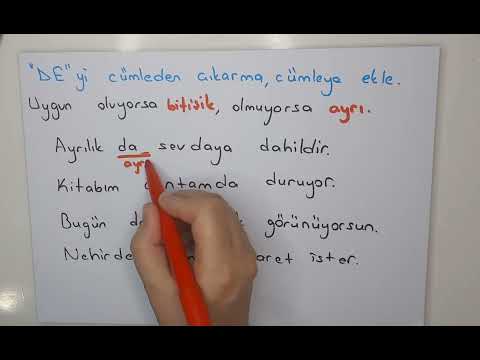 "DE"yi cümleden çıkarma, cümleye ekle.
Uygun oluyorsa bitişik, olmuyorsa ayrı.
Ayrılık da sevdaya dahildir.
ayrı
Kitabım çantamda duruyor.
Bugün görünüyorsun.
ister.